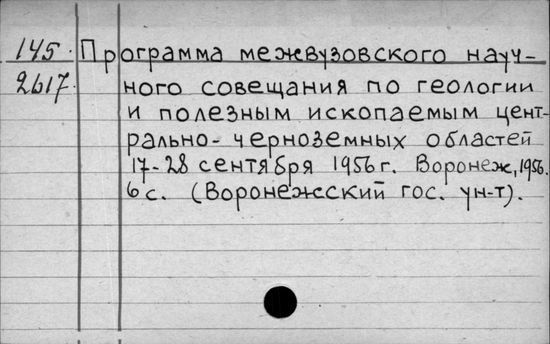 145. Программа межвузовского науч-
2617. ного совещания по геологии
и полезным ископаемым цент-
рально-черноземных областей
17-28 сентября 1956 г. Воронеж, 1956.
6 с. (Воронежский гос. ун-т).